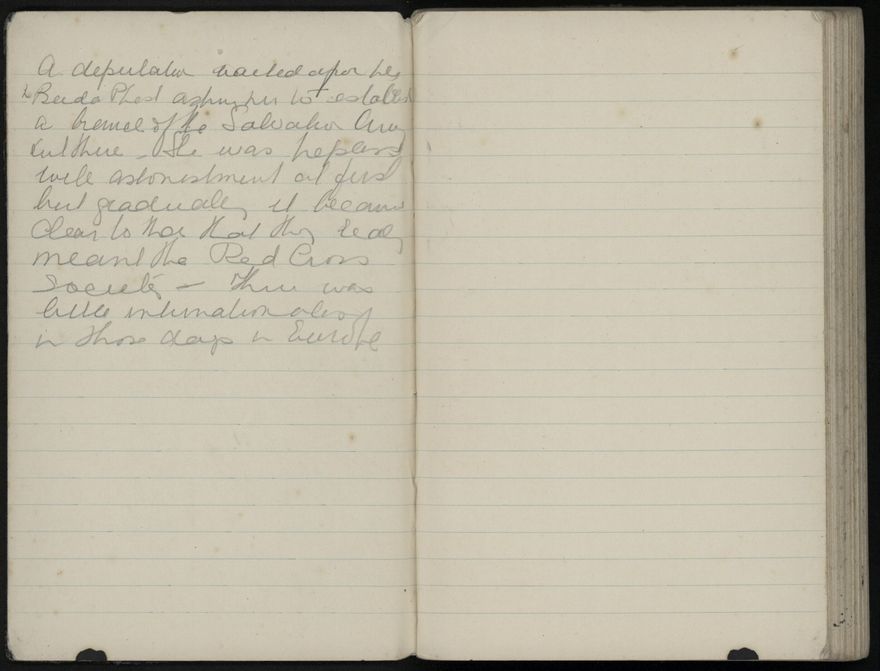 A deputation waited upon her
in Buda Pest asking her to establish
a branch of the Salvation Army
out there - She was
with astonishment at first
but gradually it became
clear to that they really
meant the Red Cross
Society - There was
little internationalism
in those days in Europe